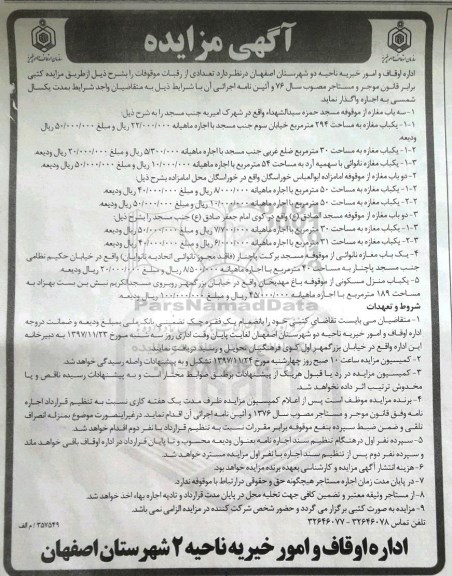 آگهی مزایده
اداره اوقاف و امور خیریه ناحیه دو شهرستان اصفهان در نظر دارد تعدادی از رقبات موقوفات را بشرح ذیل از طریق مزایده کتبی
برابر قانون موجر و مستاجر مصوب سال ۷۶ و آئین نامه اجرائی آن با شرایط ذیل به متقاضیان واجد شرایط بمدت یکسال
شمسی به اجاره واگذار نماید.
۱- سه باب مغازه از موقوفه مسجد حمزه سیدالشهداء واقع در شهرک امیریه جنب مسجد را به شرح ذیل:
۱-۱- یکباب مغازه به مساحت ۲۹۴ مترمربع خیابان سوم جنب مسجد با اجاره ماهیانه ۲۲/۰۰۰/۰۰۰ ریال و مبلغ ۵۰/۰۰۰/۰۰۰ ریال
ودیعه.
۱-۲- یکباب مغازه به مساحت ۳۰ مترمربع ضلع غربی جنب مسجد با اجاره ماهیانه ۵/۳۰۰/۰۰۰ ریال و مبلغ ۲۰/۰۰۰/۰۰۰ ریال ودیعه.
۱-۳- یکباب مغازه نانوائی با سهمیه آرد به مساحت ۵۴ مترمربع با اجاره ماهیانه ۱۰/۰۰۰/۰۰۰ ریال و مبلغ ۵۰/۰۰۰/۰۰۰ ریال ودیعه.
۲- دو باب مغازه از موقوفه امامزاده ابوالعباس خوراسگان واقع در خوراسگان محل امامزاده بشرح ذیل:
۲-۱- یکباب مغازه به مساحت ۵۰ مترمربع با اجاره ماهیانه ۸/۰۰۰/۰۰۰ ریال و مبلغ ۴۰/۰۰۰/۰۰۰ ریال ودیعه.
۲-۲- یکباب مغازه به مساحت ۵۰ مترمربع با اجاره ماهیانه ۱۰/۰۰۰/۰۰۰ ریال و مبلغ ۵۰/۰۰۰/۰۰۰ ریال ودیعه.
۳- دو باب مغازه از موقوفه مسجد صادق (ع) واقع در کوی امام جعفر صادق (ع) جنب مسجد را بشرح ذیل:
۳-۱- یکباب مغازه به مساحت ۳۰ مترمربع با اجاره ماهیانه ۷/۷۰۰/۰۰۰ ریال و مبلغ ۳۰/۰۰۰/۰۰۰ ریال ودیعه.
۳-۲- یکباب مغازه به مساحت ۳۱ مترمربع با اجاره ماهیانه ۶/۰۰۰/۰۰۰ ریال و مبلغ ۴۰/۰۰۰/۰۰۰ ریال ودیعه.
۴- یک باب مغازه نانوائی از موقوفه مسجد برکت پاچنار (فاقد مجوز نانوائی اتحادیه نانوایان) واقع در خیابان حکیم نظامی
جنب مسجد پاچنار به مساحت ۴۰ مترمربع با اجاره ماهیانه ۸/۵۰۰/۰۰۰ ریال و مبلغ ۲۰/۰۰۰/۰۰۰ ریال ودیعه.
۵- یکباب منزل مسکونی از موقوفه باغ مهدیخان واقع در خیابان بزرگمهر روبروی مسجدالکریم نبش بن بست بهزاد به
مساحت ۱۸۹ مترمربع با اجاره ماهیانه ۴۵/۰۰۰/۰۰۰ ریال و مبلغ ۱۰۰/۰۰۰/۰۰۰ ریال ودیعه.
شروط و تعهدات
۱- متقاضیان می بایست تقاضای کتبی خود را بانضمام یک فقره چک تضمینی بانک ملی بمبلغ ودیعه و ضمانت در وجه
اداره اوقاف و امور خیریه ناحیه دو شهرستان اصفهان لغایت پایان وقت اداری روز سه شنبه مورخ ۱۳۹۷/۱۱/۲۳ به دبیرخانه
این اداره واقع در خیابان بزرگمهر اول کوی فرهنگیان تحویل و رسید دریافت نمایند.
۲- کمیسیون مزایده ساعت ۱۰ صبح روز چهارشنبه مورخ ۱۳۹۷/۱۱/۲۴ تشکیل و به پیشنهادات واصله رسیدگی خواهد شد.
۳- کمیسیون مزایده در رد یا قبول هریک از پیشنهادات برطبق ضوابط مختار است و به پیشنهادات رسیده ناقص و یا
مخدوش ترتیب اثر داده نخواهد شد.
۴- برنده مزایده موظف است پس از اعلام کمیسیون مزایده ظرف مدت یک هفته کاری نسبت به تنظیم قرارداد اجاره
نامه وفق قانون موجر و مستاجر مصوب سال ۱۳۷۶ و آئین نامه اجرائی آن اقدام نماید. درغیراینصورت موضوع بمنزله انصراف
تلقی و ضمن ضبط سپرده بنفع موقوفه برابر مقررات نسبت به تنظیم قرارداد با نفر دوم اقدام خواهد شد.
۵- سپرده نفر اول درهنگام تنظیم سند اجاره نامه بعنوان ودیعه محسوب و تا پایان قرارداد در اداره اوقاف باقی خواهد ماند
و سپرده نفر دوم پس از تنظیم سند اجاره با نفر اول مزایده مسترد خواهد شد.
۶- هزینه انتشار آگهی مزایده و کارشناسی بعهده برنده مزایده خواهد بود.
۷- در پایان مدت زمان اجاره مستاجر هیچگونه حق و حقوقی در ارتباط با موقوفه ندارد.
۸- از مستاجر وثیقه معتبر و تضمین کافی جهت تخلیه محل در پایان مدت قرارداد و تادیه اجاره بهاء اخذ خواهد شد.
۹- مزایده به صورت کتبی برگزار می گردد و حضور شخص شرکت کننده در مزایده الزامی نمی باشد.
تلفن تماس ۳۲۶۴۶۰۷۸ - ۳۲۶۴۶۰۷۷
۳۵۷۵۴۹ / م الف
اداره اوقاف و امور خیریه ناحیه ۲ شهرستان اصفهان
ParsNamadData